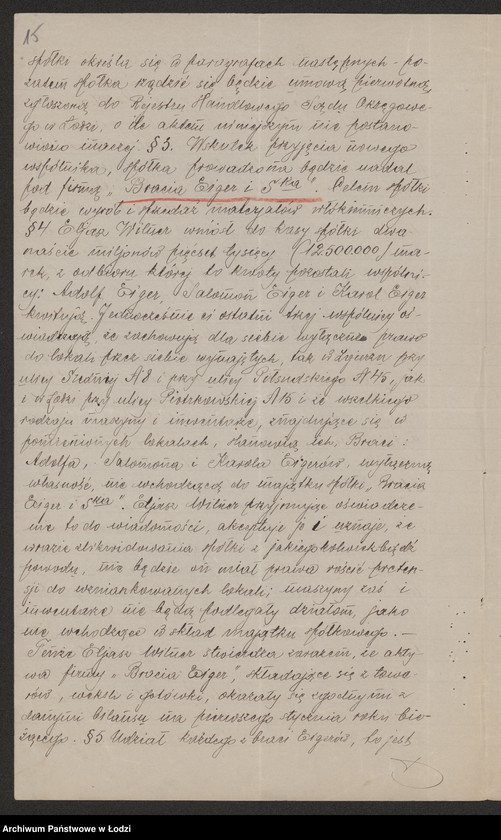 15
spółki określa się w paragrafach następnych – po-
zatem spółka rządzić się będzie umową pierwotną,
zgłoszoną do Rejestru Handlowego Sądu Okręgowe-
go w Łodzi, o ile aktem niniejszym nie postano-
wiono inaczej § 3. Wskutek przyjęcia nowego
wspólnika, spółka prowadzona będzie nadal
pod firmą „Bracia Eiger i S-ka". Celem spółki
będzie wyrób i sprzedaż materjałów włókienniczych.
§4 Eljasz Wilner wniósł do kasy spółki dwa-
naście miljonów pięćset tysięcy (12.500.000) ma-
rek, z odbioru której to kwoty pozostali wspólni-
cy: Adolf Eiger, Salomon Eiger i Karol Eiger
kwitują. Jednocześnie ci ostatni trzej wspólnicy oś-
wiadczają, że zachowują dla siebie wyłączne prawo
do lokali przez siebie wynajętych, tak w Zgierzu przy
ulicy Średniej N 8 i przy ulicy Piłsudskiego N 45, jak
i w Łodzi przy ulicy Piotrkowskiej N 15 i że wszelkiego
rodzaju maszyny i inwentarze, znajdujące się w
pomienionych lokalach, stanowią ich, Braci:
Adolfa, Salomona i Karola Eigerów, wyłączną
własność, nie wchodzącą do majątku spółki „Bracia
Eiger i S-ka". Eljasz Wilner przyjmując oświadcze-
nie to do wiadomości, akceptuje je i uznaje, że
w razie zlikwidowania spółki z jakiegokolwiek bądź
powodu, nie będzie on miał prawa rościć preten-
sji do wzmiankowanych lokali; maszyny zaś i
inwentarze nie będą podlegały działom, jako
nie wchodzące w skład majątku spółkowego. —
Tenże Eljasz Wilner stwierdza zarazem, że akty-
wa firmy „Bracia Eiger", składające się z towa-
rów, weksli i gotówki, okazały się zgodnymi z
danymi bilansu na pierwszego stycznia roku bie-
żącego. §5 Udział każdego z braci Eigerów, to jest
Archiwum Państwowe w Łodzi